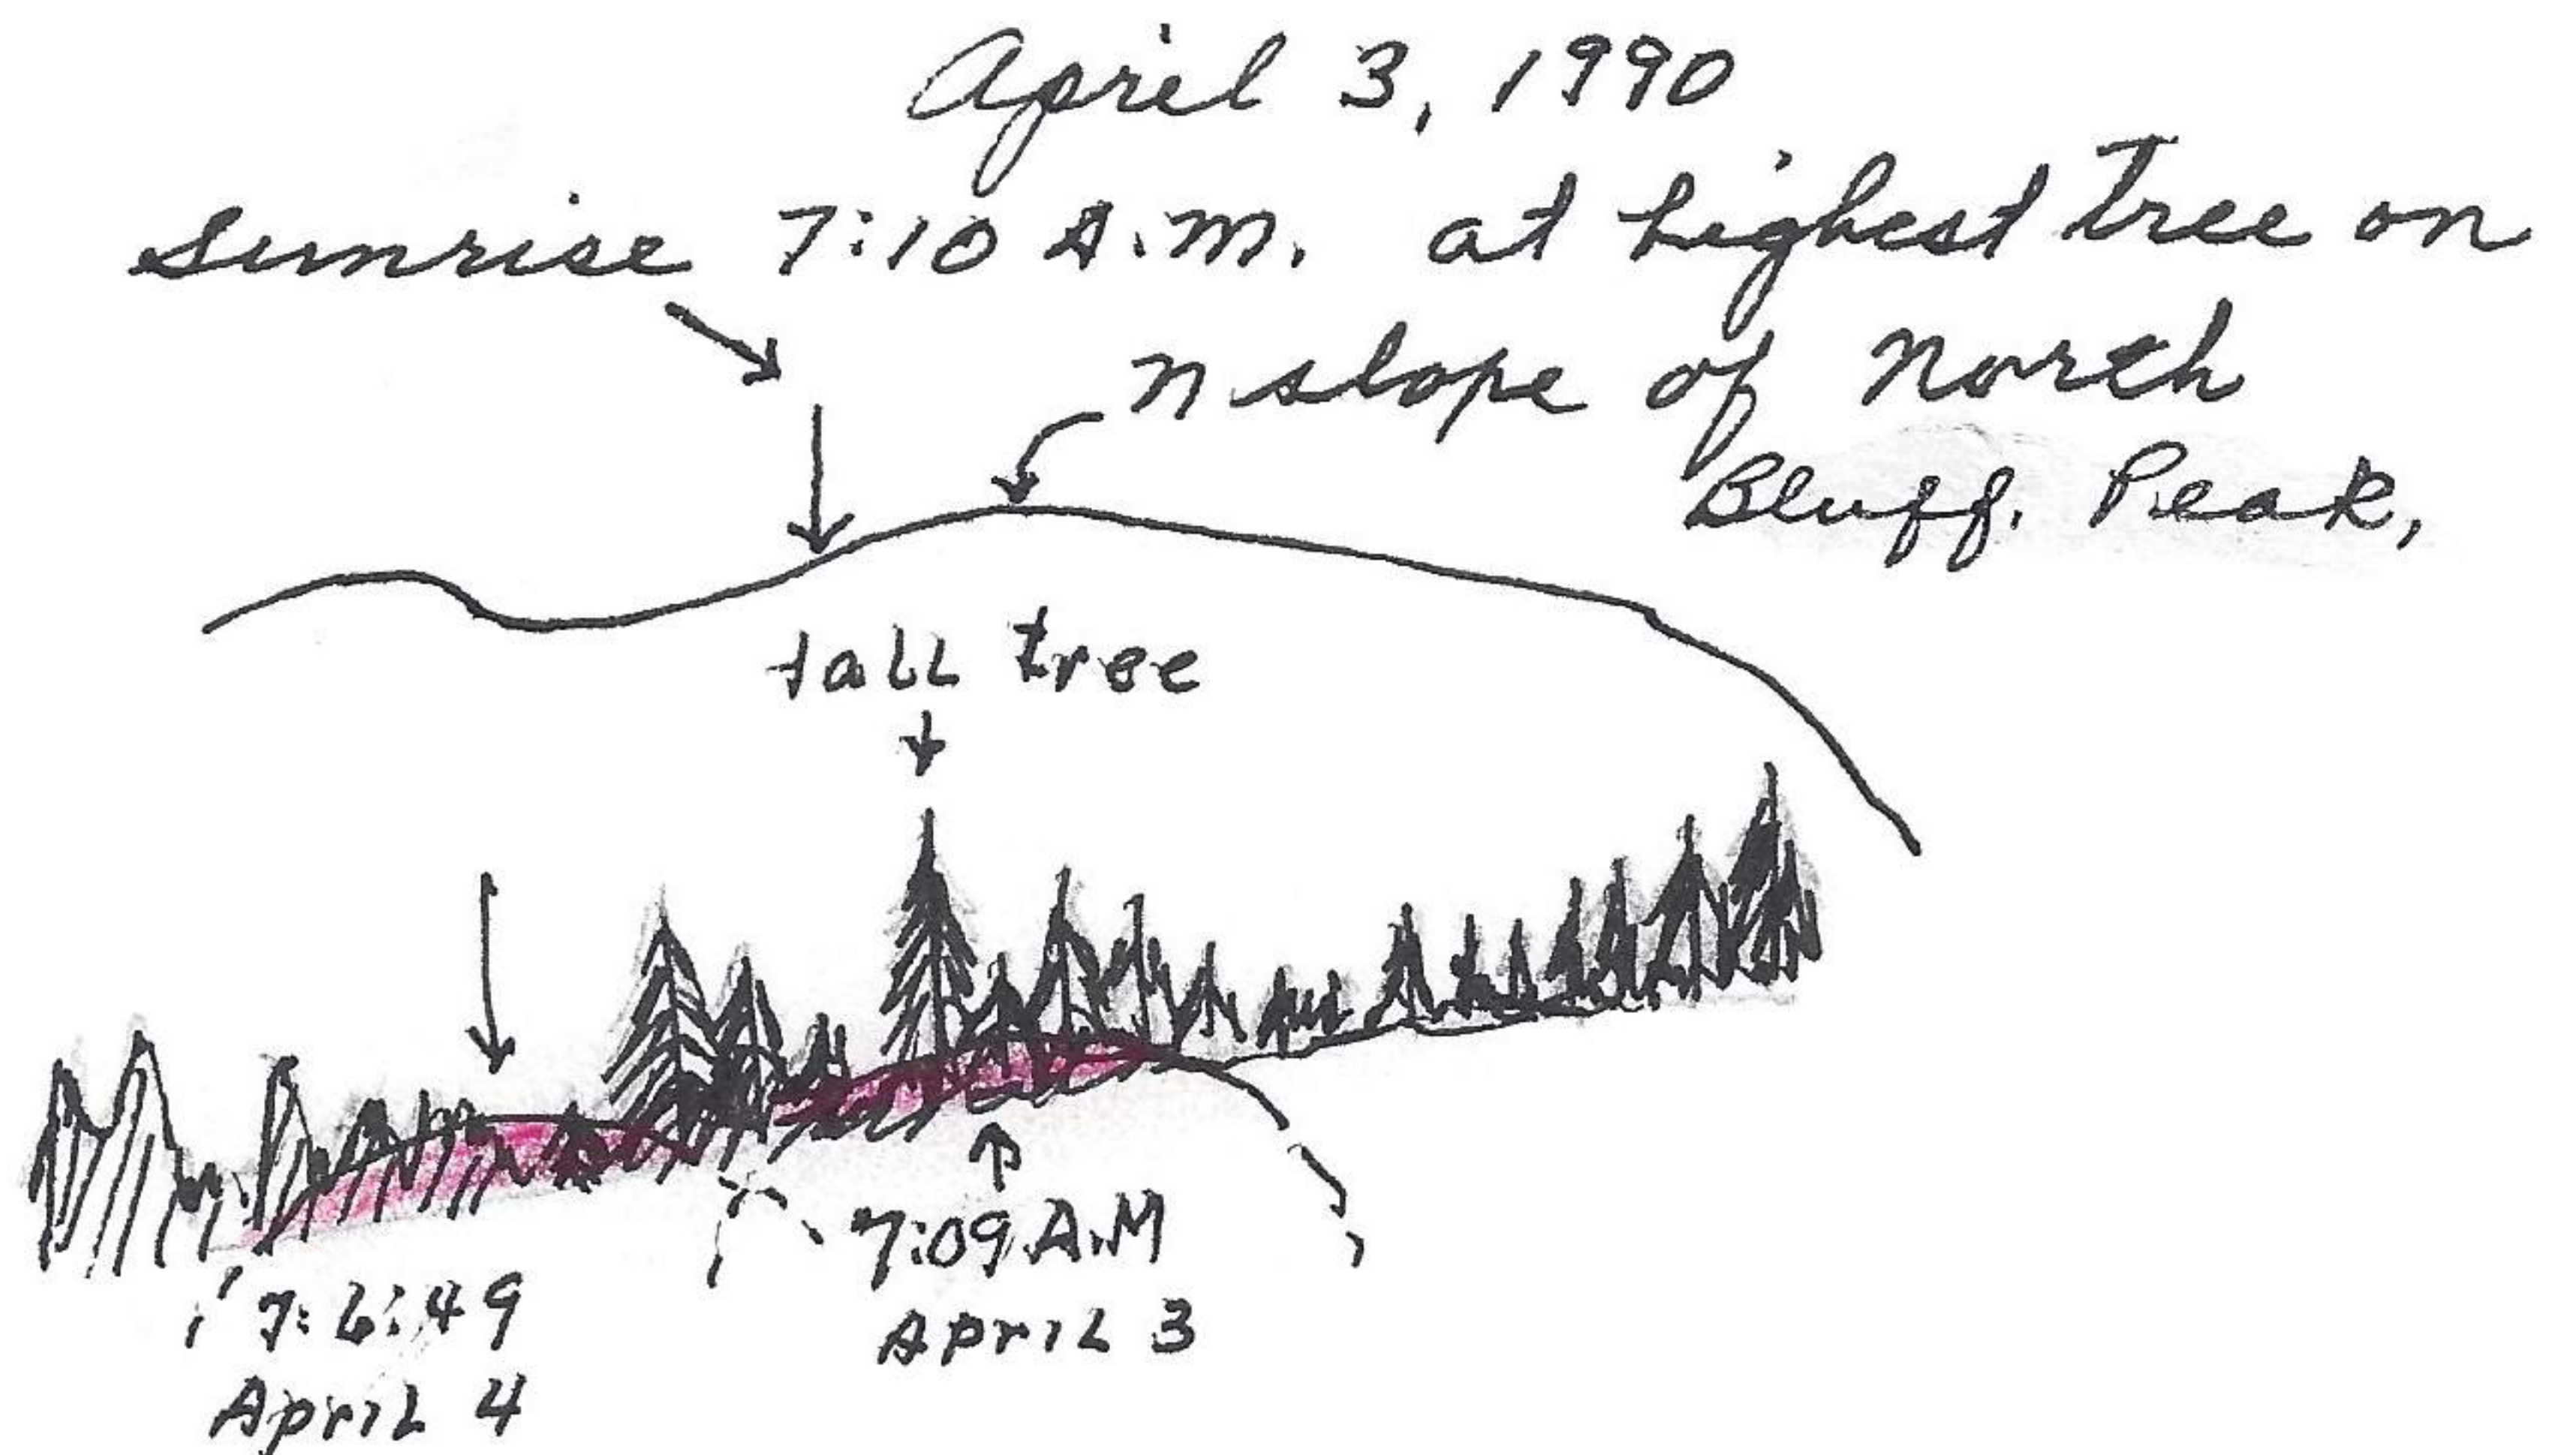 April 3, 1990
sunrise 7:10 A.M. at highest Tree on
N slope of North
Bluff. Peak,
tall tree
7:09 A.M
April 3
7:6:49
April 4